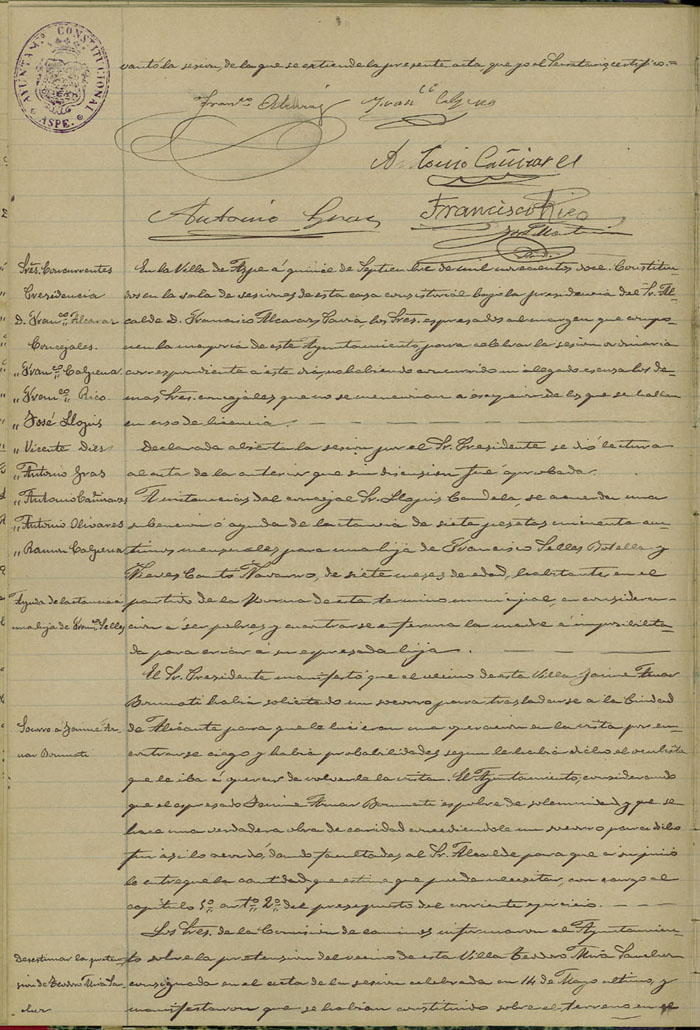 AYUNTAMTO CONSTITUCIONAL
ASPE
vantó la sesion, de la que se extiende la presente acta que yo el Secretario certifico.=
Franco Alcaraz
Franco Calpena
Antonio Cañizares
Antonio Gras
Francisco Rico
José Martin
Sres. Concurrentes
Presidencia
D. Franco Alcaraz
Concejales.
„ Franco Calpena
„ Franco Rico
„ José Llopis
„ Vicente Dies
„ Antonio Gras
„ Antonio Cañizares
„ Antonio Olivares
„ Ramon Calpena
En la Villa de Aspe á quince de Septiembre de mil novecientos doce. Constitui-
dos en la sala de sesiones de esta casa consistorial bajo la presidencia del Sr. Al-
calde D. Francisco Alcaraz Soria, los Sres. expresados al margen que compo-
nen la mayoria de este Ayuntamiento, para celebrar la sesion ordinaria
correspondiente á este dia, no habiendo concurrido ni alegado escusa los de-
mas Sres. concejales que no se mencionan á escepcion de los que se hallan
en uso de licencia.
Declarada abierta la sesion por el Sr. Presidente se dió lectura
al acta de la anterior que sin discusion fué aprobada.
A instancias del concejal Sr. Llopis Candela, se acuerda una
subvencion ó ayuda de lactancia de siete pesetas cincuenta cen-
timos mensuales para una hija de Francisco Selles Botella y
Nieves Cantó Navarro, de siete meses de edad, habitantes en el
Ayuda de lactancia á
una hija de Franco Selles
partido de la Horna de este termino municipal, en considera-
cion á ser pobres y encontrarse enferma la madre é imposibilita-
da para criar á su expresada hija.
El Sr. Presidente manifestó que el vecino de esta Villa Jaime Aznar
Brumoti habia solicitado un socorro para trasladarse á la Ciudad
Socorro á Jaime Az-
nar Brumoti
de Alicante para que le hicieran una operacion en la vista por en-
contrarse ciego y habia probabilidades segun le habia dicho el oculista
que le iba á operar de volverle la vista. El Ayuntamiento, considerando
que el expresado Jaime Aznar Brumoti es pobre de solemnidad y que se
hace una verdadera obra de caridad concediendole un socorro para dicho
fin asi lo acordó, dando facultades al Sr. Alcalde para que á su juicio
le entregue la cantidad que estime que pueda necesitar, con cargo al
capitulo 5º artº 2º del presupuesto del corriente ejercicio.
Los Sres. de la Comision de caminos informaron al Ayuntamien-
Desestimar la preten-
sion de Teodoro Mirá Sa-
chez
to sobre la pretension del vecino de esta Villa Teodoro Mirá Sanchez
consignada en el acta de la sesion celebrada en 14 de Mayo ultimo, y
manifestaron que se habian constituido sobre el terreno en el